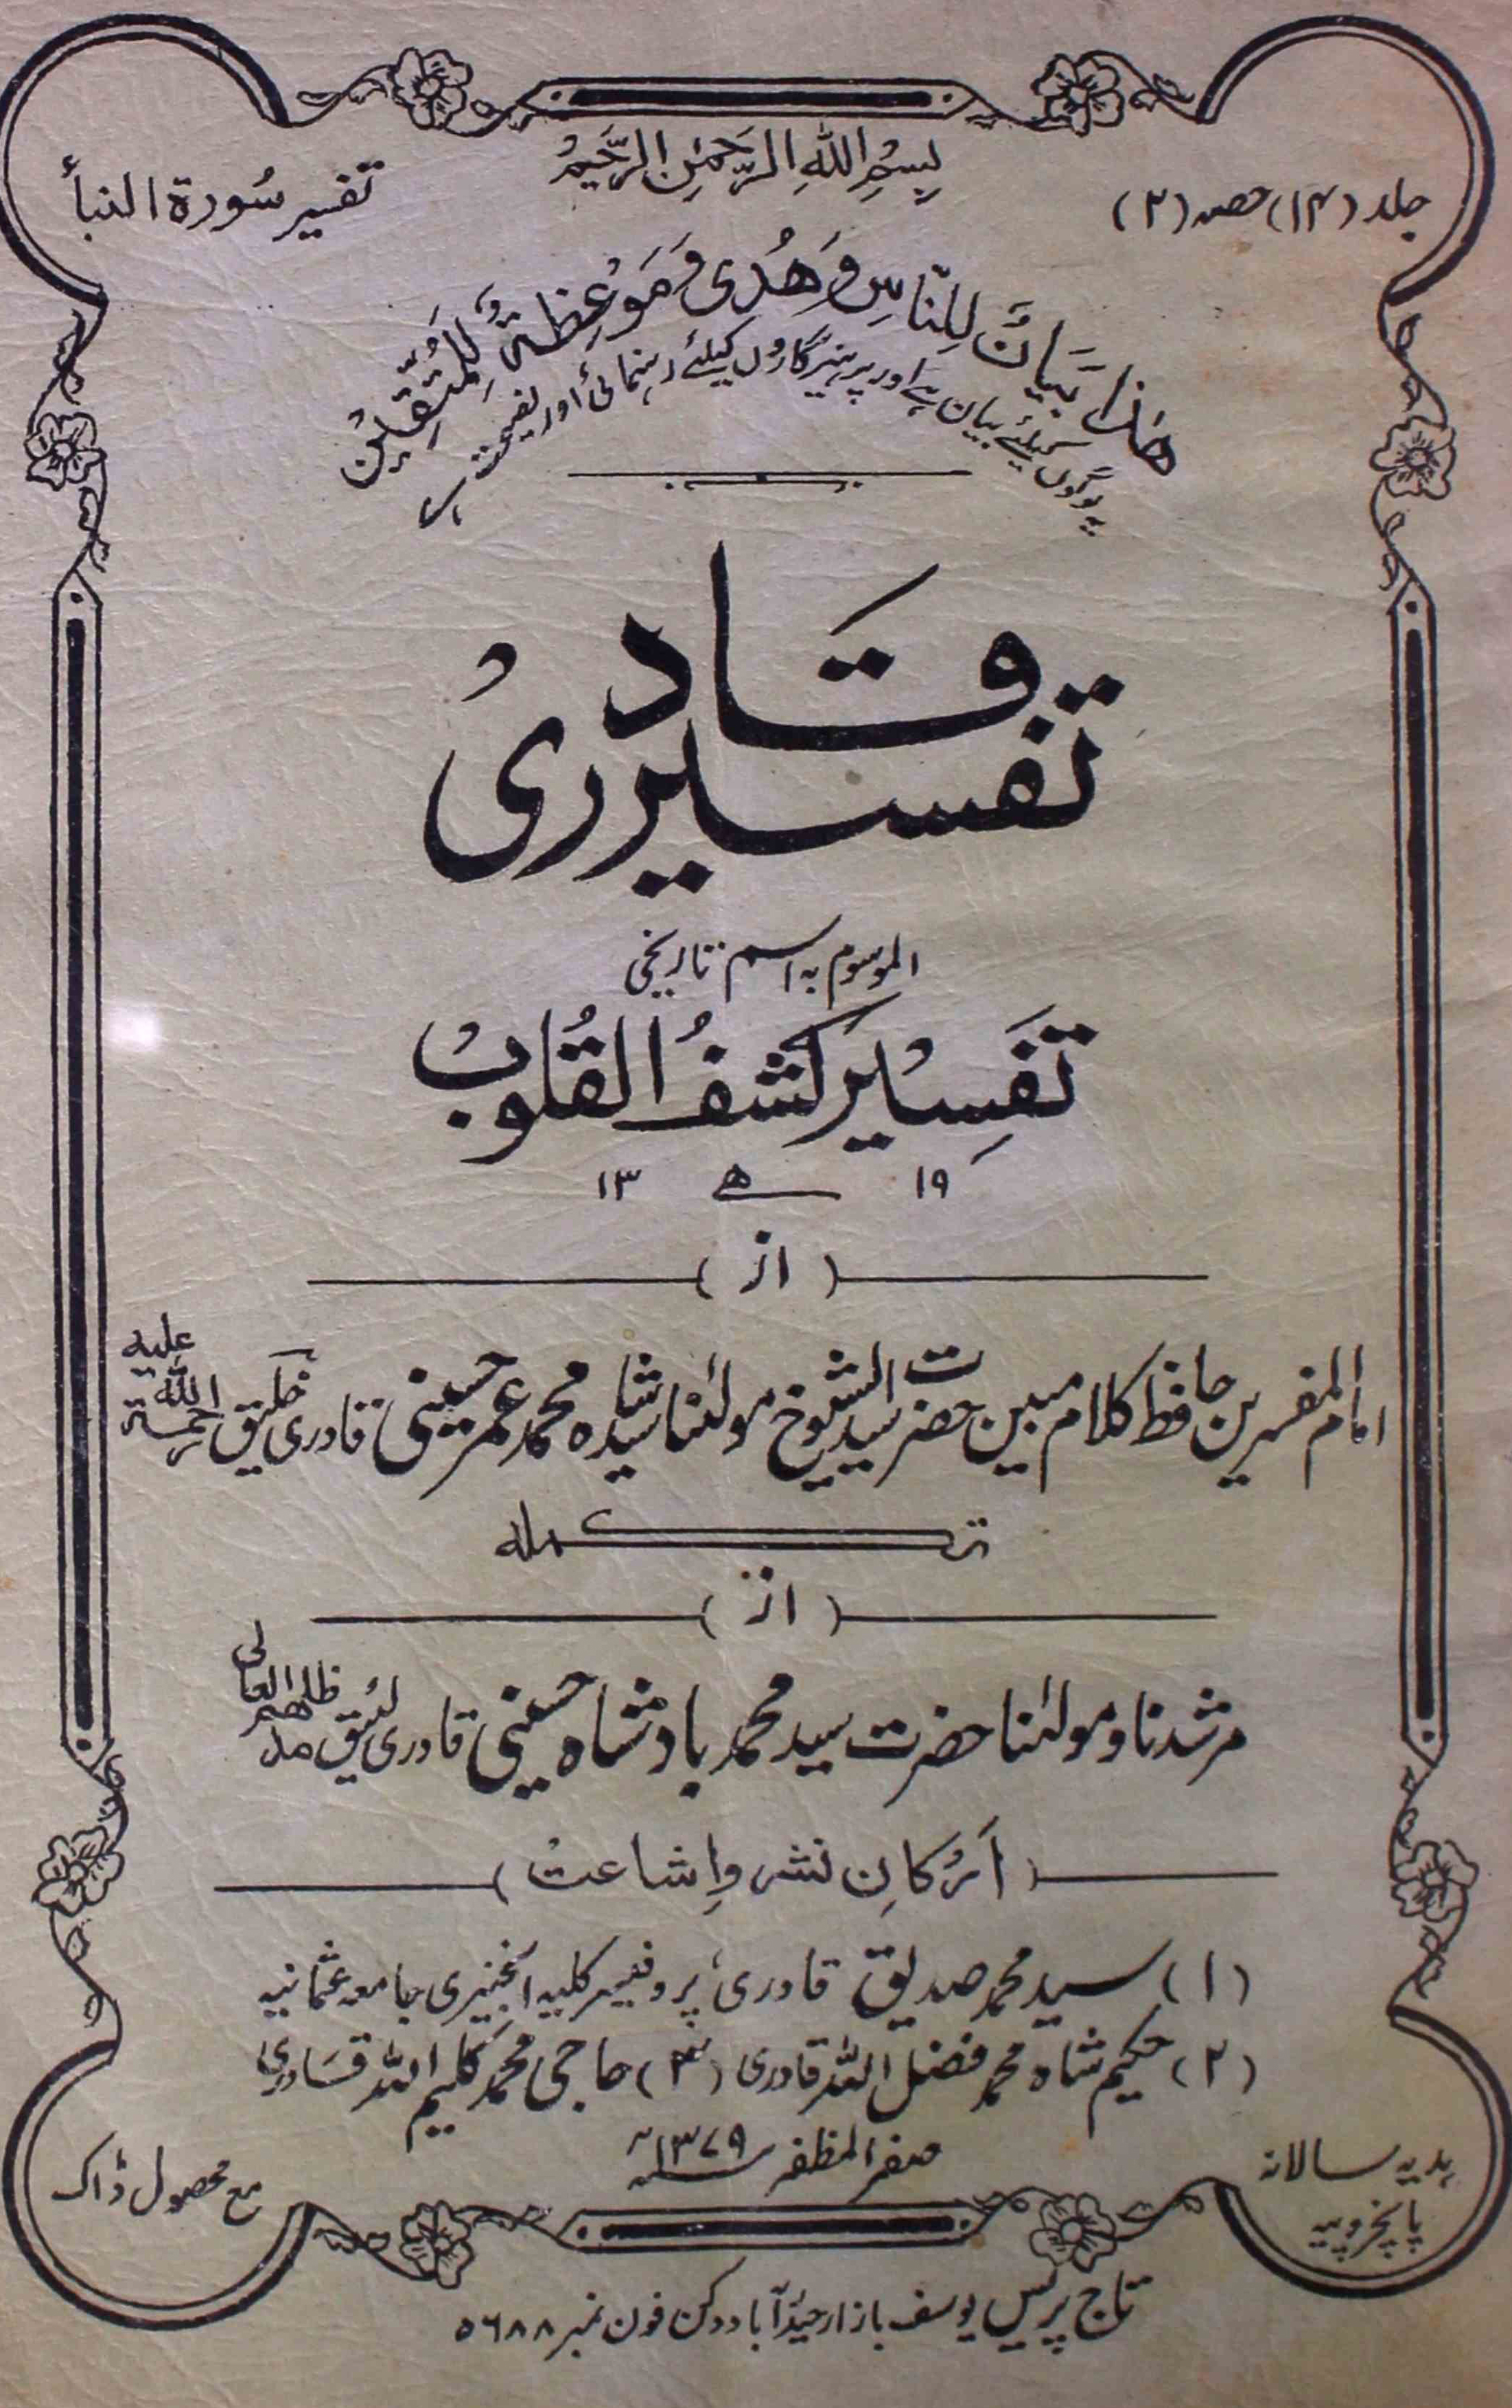 بِسْمِ اللهِ الرَّحْمٰنِ الرَّحِيْمُ
جلد (۱۴) حصہ (۲)
تفسیر سُورۃ النبأ
هٰذَا بَيَانٌ لِلنَّاسِ وَهُدًى وَمَوْعِظَةٌ لِلْمُتَّقِيْنَ
یہ لوگوں کیلئے بیان ہے اور پرہیزگاروں کیلئے رہنمائی اور نصیحت ہے
تفسیر قادری
الموسوم بہ اسم تاریخی
تَفسِیْر کَشفُ القُلُوبْ
۱۳ ھ ۱۹
(از)
امام المفسرین حافظ کلام مبین حضرت سید الشیوخ مولٰنا سید شاہ محمد عمر حسینی قادری خلیق رحمۃ اللہ علیہ
تکملہ
(از)
مرشدنا و مولٰنا حضرت سید محمد بادشاہ حسینی قادری لئیق مدظلہم العالی
(اَرْکانِ نشر واِشاعت)
(۱) سید محمد صدیق قادری، پروفیسر کلیہ انجنیری جامعہ عثمانیہ
(۲) حکیم شاہ محمد فضل اللہ قادری (۳) حاجی محمد کلیم اللہ قادری
صفر المظفر ۱۳۷۹ھ
ہدیہ سالانہ
پانچروپیہ
مع محصول ڈاک
تاج پریس یوسف بازار حیدرآباد دکن فون نمبر ۵۶۸۸